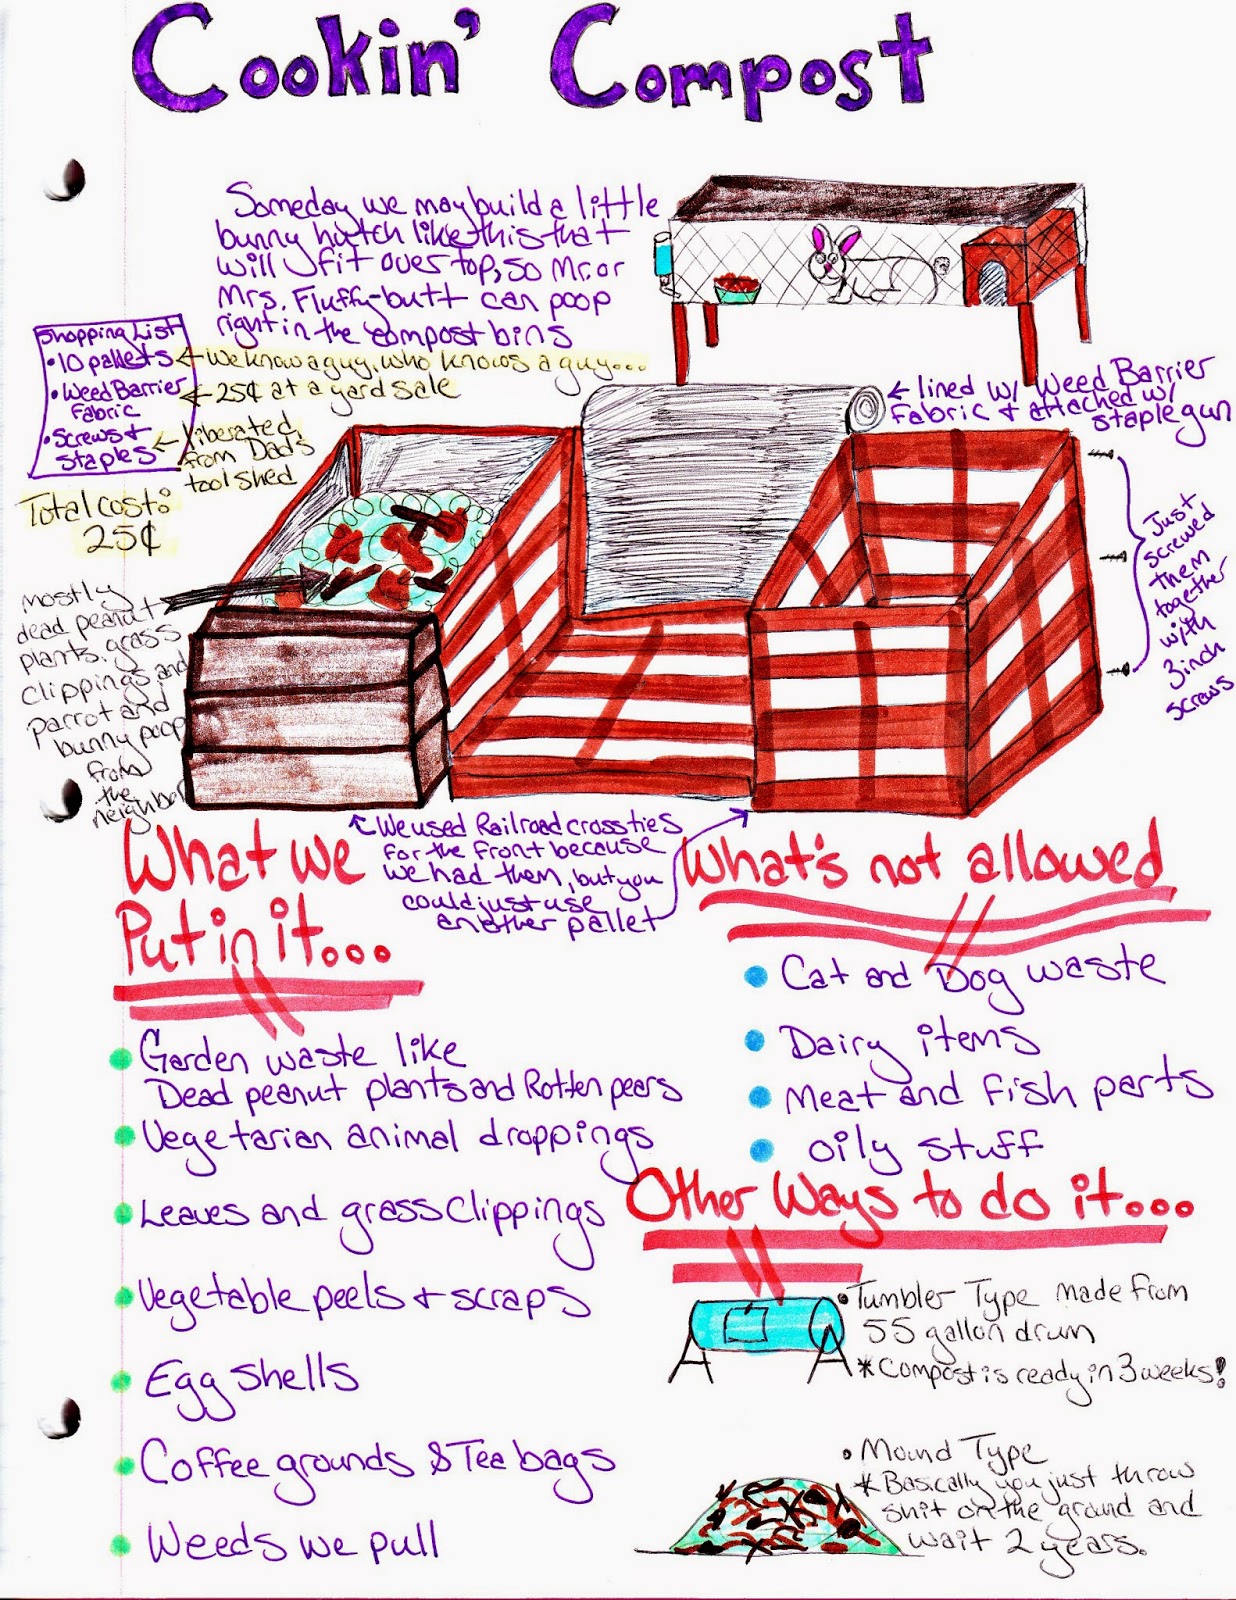 Cookin' Compost
Someday we may build a little
bunny hutch like this that
will fit over top, so Mr. or
Mrs. Fluffy-butt can poop
right in the compost bins
Shopping List
• 10 pallets
• Weed Barrier
Fabric
• Screws &
staples
← We know a guy, who knows a guy...
← 25¢ at a yard sale
← Liberated
from Dad's
tool shed
Total cost:
25¢
← lined w/ Weed Barrier
Fabric & attached w/
staple gun
Just
screwed
them
together
with
3inch
screws
mostly
dead peanut
plants, grass
clippings and
parrot and
bunny poop
from
the
neighbor
We used Railroad crossties
for the front because
we had them, but you
could just use
another pallet
What we
Put in it...
• Garden waste like
Dead peanut plants and Rotten pears
• Vegetarian animal droppings
• Leaves and grass clippings
• Vegetable peels & scraps
• Egg shells
• Coffee grounds & Tea bags
• Weeds we pull
What's not allowed
• Cat and Dog waste
• Dairy items
• Meat and fish parts
• oily stuff
Other Ways to do it...
• Tumbler Type made from
55 gallon drum
* Compost is ready in 3 weeks!
• Mound Type
* Basically you just throw
shit on the ground and
wait 2 years.